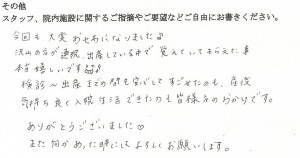 その他
スタッフ、院内施設に関するご指摘やご要望などご自由にお書きください。
今回も大変おせわになりました♪
沢山の方が通院、出産している中で覚えていてもらえた事
本当嬉しいです
検診〜出産までの間も安心してすごせたのも、産後
気持ち良く入院生活できたのも皆様方のおかげです。
ありがとうございました♡
また何かあった時にはよろしくお願いします。